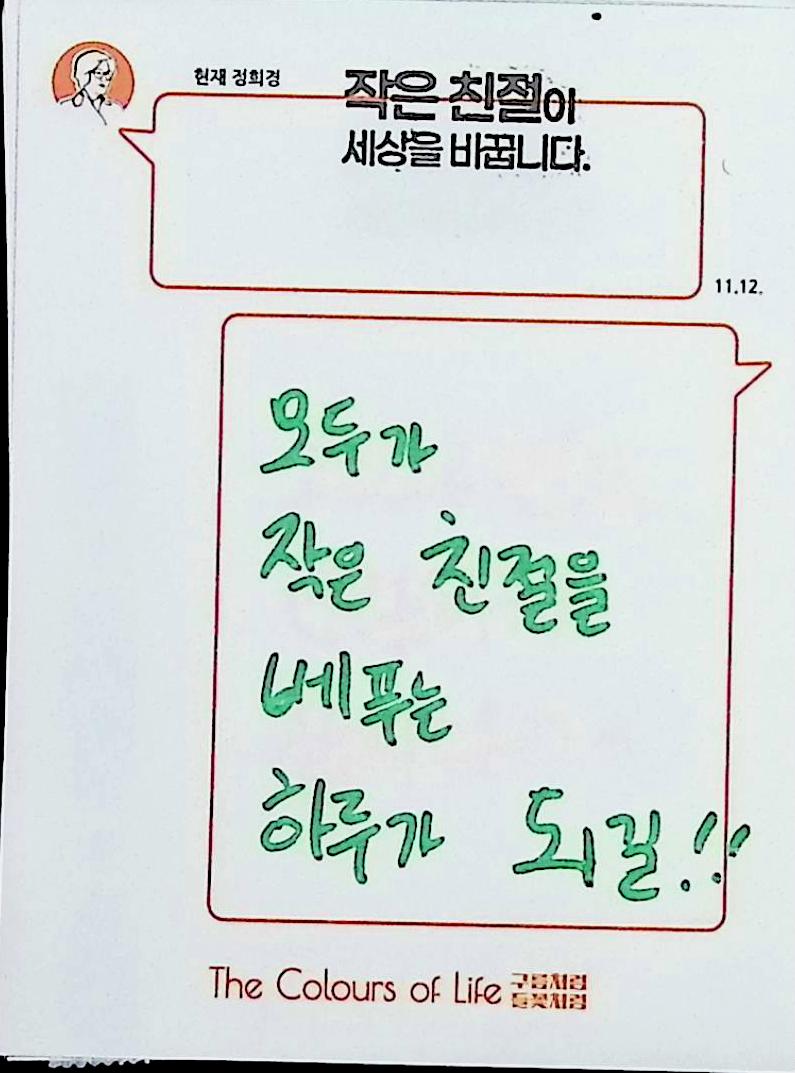 현재 정희경
작은 친절이
세상을 바꿉니다.
11.12.
모두가
작은 친절을
베푸는
하루가 되길!!
The Colours of Life 구름처럼
들꽃처럼